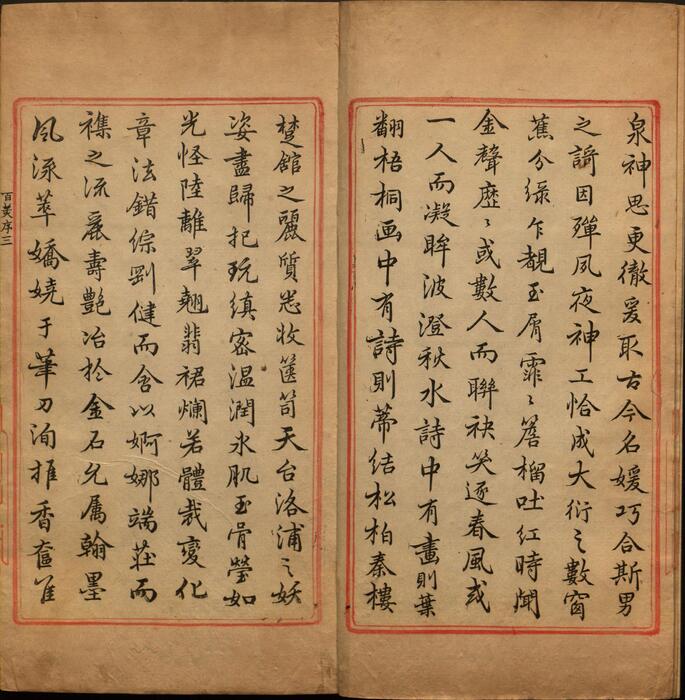 泉神思更徹爰取古今名媛巧合斯男
之詩因殫夙夜神工恰成大衍之數窗
蕉分綠乍覩玉屑霏〻簷榴吐紅時聞
金聲歷〻或數人而聯袂笑逐春風或
一人而凝眸波澄秋水詩中有畫則葉
翻梧桐画中有詩則蒂結松柏秦樓
楚館之麗質悉收篋笥天台洛浦之妖
姿盡歸把玩縝密溫潤氷肌玉骨瑩如
光怪陸離翠翹翡裙爛若體裁變化
章法錯綜剛健而含以婀娜端莊而
襍之流麗壽艷冶於金石允属翰墨
風流萃嬌嬈于筆刀洵推香奩
百美序三